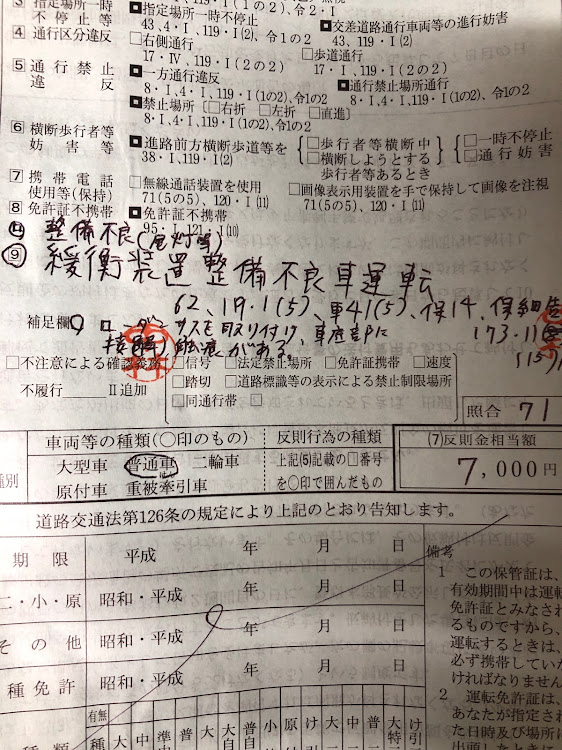 ③ 指定場所一時 ■指定場所一時不停止
不停止等 43、4・I、119・I(2)、令1の2 ■交差道路通行車両等の進行妨害
43、119・I(2)
④ 通行区分違反 □右側通行 □歩道通行
17・IV、119・I(2の2) 17・I、119・I(2の2)
⑤ 通行禁止 ■一方通行違反 ■通行禁止場所通行
違反 8・I、4・I、119・I(1の2)、令1の2 8・I、4・I、119・I(1の2)、令1の2
■禁止場所〔□右折 □左折 □直進〕
8・I、4・I、119・I(1の2)、令1の2
⑥ 横断歩行者等 ■進路前方横断歩道等を □歩行者等横断中 □一時不停止
妨害等 38・I、119・I(2) □横断しようとする □通行妨害
歩行者等あるとき
⑦ 携帯電話 □無線通話装置を使用 □画像表示用装置を手で保持して画像を注視
使用等(保持) 71(5の5)、120・I(11) 71(5の5)、120・I(11)
⑧ 免許証不携帯 ■免許証不携帯
95・I、121・I(10)
整備不良(尾灯等)
⑨ 緩衝装置整備不良車運転
62、119・1(5)、車41(5)、保14、保細告
補足欄 9 ロ サスを取り付け、車底部に 173・1
痕がある。
□不注意による確認義務 □信号 □法定禁止場所 □免許証携帯 □速度
不履行 II追加 □踏切 □道路標識等の表示による禁止制限場所
□同通行帯 □
照合 71
車両等の種類(○印のもの) 反則行為の種類 (7)反則金相当額
種別 大型車 普通車 二輪車 上記(5)記載の□番号 7,000円
原付車 重被牽引車 を○印で囲んだもの
道路交通法第126条の規定により上記のとおり告知します。
期限 平成 年 月 日 備考
二・小・原 昭和・平成 年 月 日
その他 昭和・平成 年 月 日
種免許 昭和・平成 年 月 日
1 この保管証は、
有効期間中は運転
免許証とみなされ
るものですから、
運転するときは、
必ず携帯してい
ければなりません
2 運転免許証は、
あなたが指定され
た日時及び場所に
出頭したときに
種類 有無 種 大 中 準中 普 大 大自 普自 小 原 け引 大 中 普 大特 け引